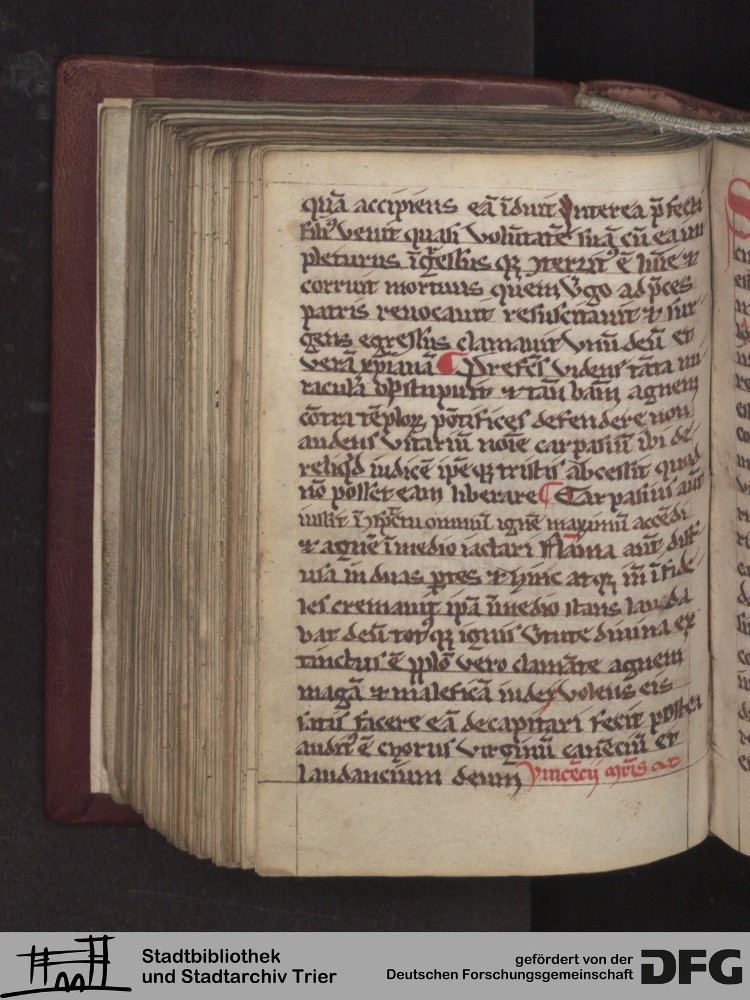 quā accipiens eā īduit Interea p̄fecti
filiꝰ venit quasi volūtatē suā cū ea im
pleturus
corruit mortuus quem v̾go ad p̄ces
patris revocavit resuscitavit ⁊ sur
gens egressus clamavit vnū deū et
verā xp̄ianā ¶ Prefes videns tāta mi
racula obstupuit ⁊ tān bām agnem
cōtra tēploꝝ pōtifices defendere non
audens vicariū noīe carpasiū ibi de
reliqd iudicē ipēqꝫ tristis abcessit quod
nō posset eam liberare ¶ Carpasius aūt
iussit ī ꝯspectu omniū ignē maximū accēdi
⁊ agnē ī medio iactari flāma aūt divi
sa in duas ꝑtes ⁊ hinc atqꝫ īn īfide
les cremavit ipā ī medio stans lauda
bat deū totꝰqꝫ ignis v̾tute divina ex
tinctus ē pplō vero clamāte agnem
magā ⁊ maleficā iudex volens eis
satis facere eā decapitari fecit postea
auditꝰ ē chorus virginū canēciū et
laudancium deum Vincēcij mr̄is
Stadtbibliothek
und Stadtarchiv Trier
gefördert von der
Deutschen Forschungsgemeinschaft
DFG